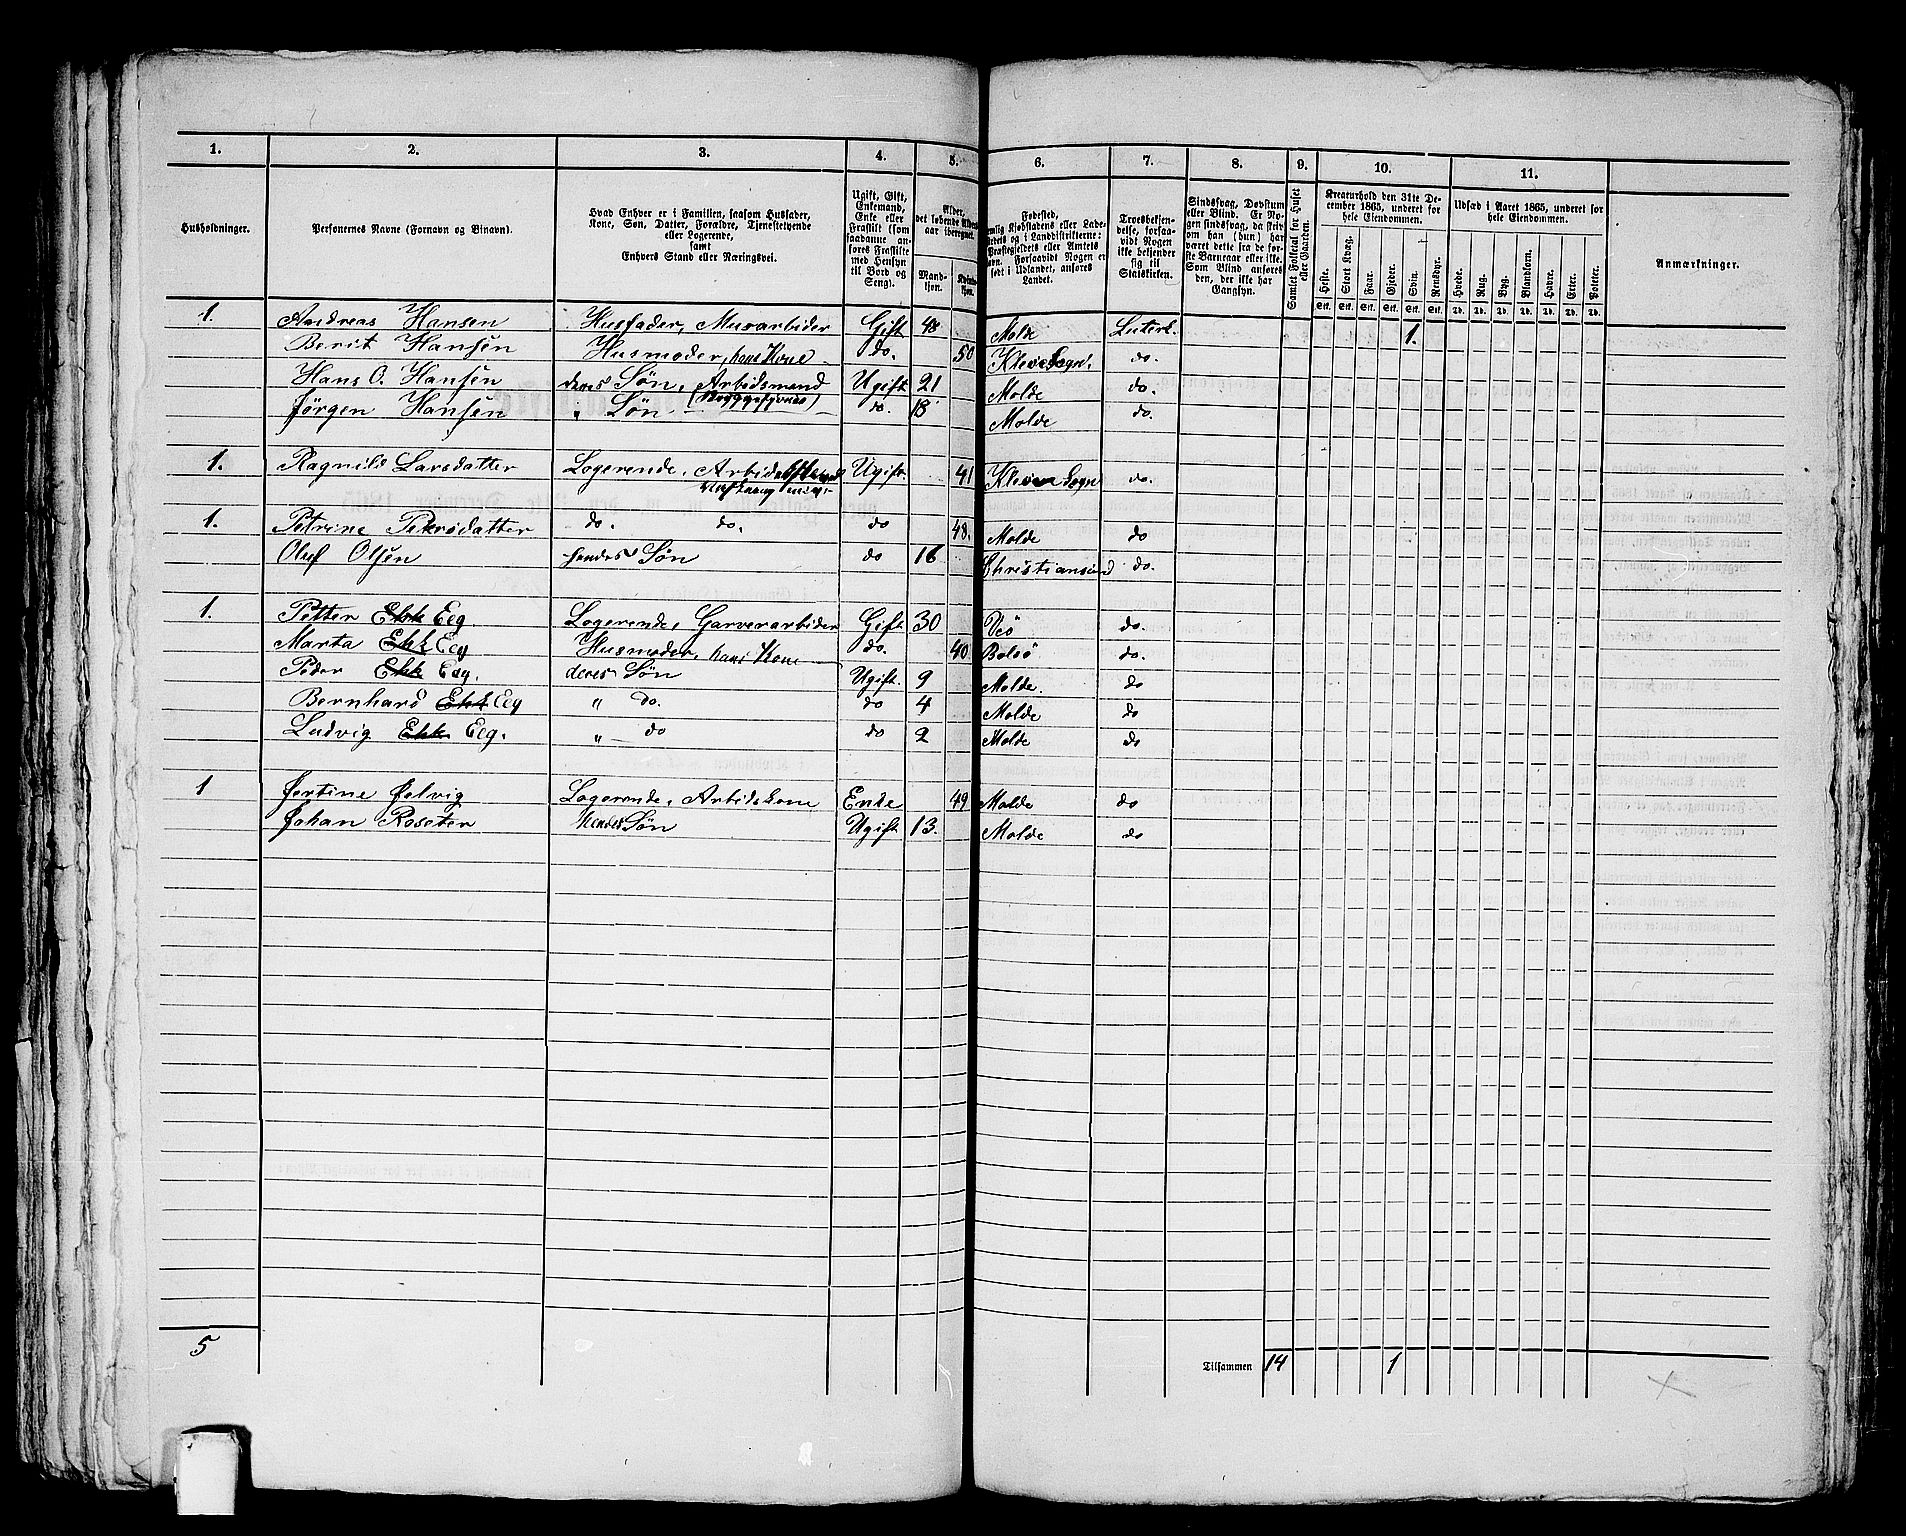 1. 2. 3. 4. 5. 6. 7. 8. 9. 10. 11.
Husholdninger.
Personernes Navne (Fornavn og Binavn).
Hvad Enhver er i Familien, saasom Husfader,
Kone, Søn, Datter, Forældre, Tjenestetyende
eller Logerende,
samt
Enhvers Stand eller Næringsvei.
Ugift, Gift,
Enkemand,
Enke eller
Fraskilt (som
saadanne an-
føres Fraskilte
med Hensyn
til Bord og
Seng).
Alder,
det løbende Alders-
aar iberegnet.
Mand-
kjøn.
Kvinde-
kjøn.
Fødested,
nemlig Kjøbstadens eller Lade-
stedets og i Landdistrikterne:
Præstegjeldets eller Amtets
Navn. Forsaavidt Nogen er
født i Udlandet, anføres
Landet.
Troesbekjen-
delse, forsaa-
vidt Nogen
ikke bekjender
sig til
Statskirken.
Sindssvag, Døvstum
eller Blind. Er No-
gen sindssvag, da skriv
om han (hun) har
været dette fra de før-
ste Barneaar eller ikke.
Som Blind ansøres
den, der ikke har
Gangsyn.
Samlet Folketal for Huset
eller Gaarden.
Kreaturhold den 31te De-
cember 1865, underet for
hele Eiendommen.
Heste. Stort Kvæg. Faar. Gjeder. Svin. Rensdyr.
Stk. Stk. Stk. Stk. Stk. Stk.
Udsæd i Aaret 1865, underet for
hele Eiendommen.
Hvede. Rug. Byg. Blandkorn. Havre. Erter. Poteter.
Td. Td. Td. Td. Td. Td. Td.
Anmærkninger.
1. Andreas Hansen Husfader, Murarbider Gift 48 Molde Luterk. 1.
Berit Hansen Husmoder, hans Kone do. 50 Kleve Sogn. do.
Hans O. Hansen deres Søn, Arbidsmand Ugift 21 Molde do.
(Bryggesjouer)
Jørgen Hansen " Søn do. 18 Molde do.
1. Ragnild Larsdatter Logerende, Ugift. 41 Kleve Sogn do.
1. Petrine Petersdatter do. do. do 48. Molde do
Oluf Olsen hendes Søn do 16 Christiansund do.
1. Petter Ekk Eeg Logerende, Garverarbider Gift 30 Veö do.
Marta Ekk Eeg Husmoder, hans Kone do. 40 Bolsö do.
Peder Ekk Eeg. deres Søn Ugift. 9 Molde. do
Bernhard Ekk Eeg " do. do 4 Molde do
Ludvig Ekk Eeg. " do do 2 Molde do
1 Jertine Jelvig Logerende, Arbidskone Enke 49 Molde do
Johan Roseter Hendes Søn Ugift 13. Molde do
5 Tilsammen 14 1